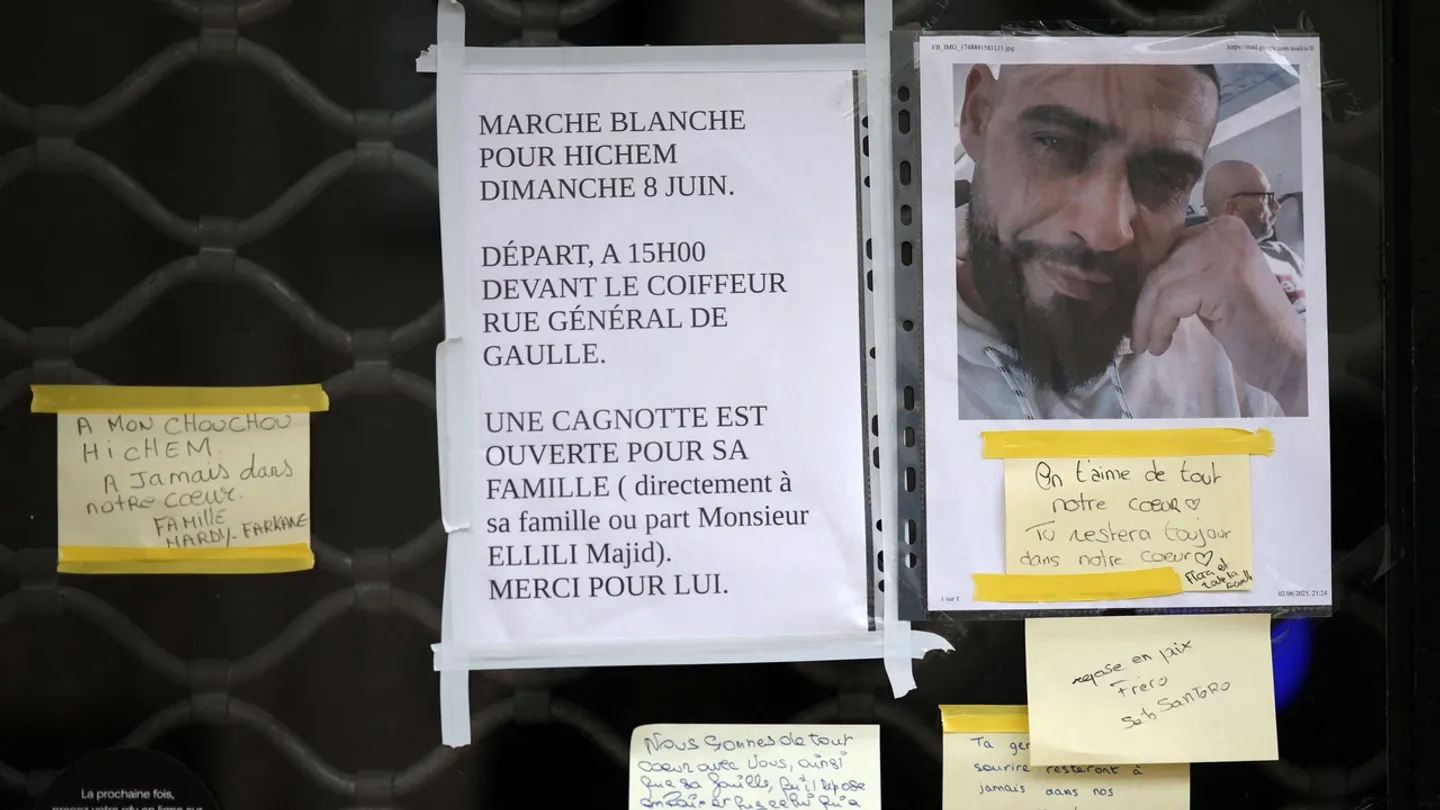 MARCHE BLANCHE
POUR HICHEM
DIMANCHE 8 JUIN.
DÉPART, A 15H00
DEVANT LE COIFFEUR
RUE GÉNÉRAL DE
GAULLE.
UNE CAGNOTTE EST
OUVERTE POUR SA
FAMILLE ( directement à
sa famille ou part Monsieur
ELLILI Majid).
MERCI POUR LUI.
FB_IMG_1748891583131.jpg
https://mail.google.com/mail/u/0
On t'aime de tout
notre coeur♡
Tu restera toujour
dans notre coeur♡
Flora et
toute la
famille
1 sur 1
02/06/2025, 21:24
A MON CHOUCHOU
HiCHEM.
A Jamais dans
notre coeur.
FAMILLE
HARDY-FARKANE
repose en paix
Frero
Seb SANTORO
Nous sommes de tout
coeur avec vous, ainsi
que sa famille, qu'il repose
en paix et que celui qui a
Ta
sourire resteront à
jamais dans nos
La prochaine fois,
prenez votre rdv en ligne sur